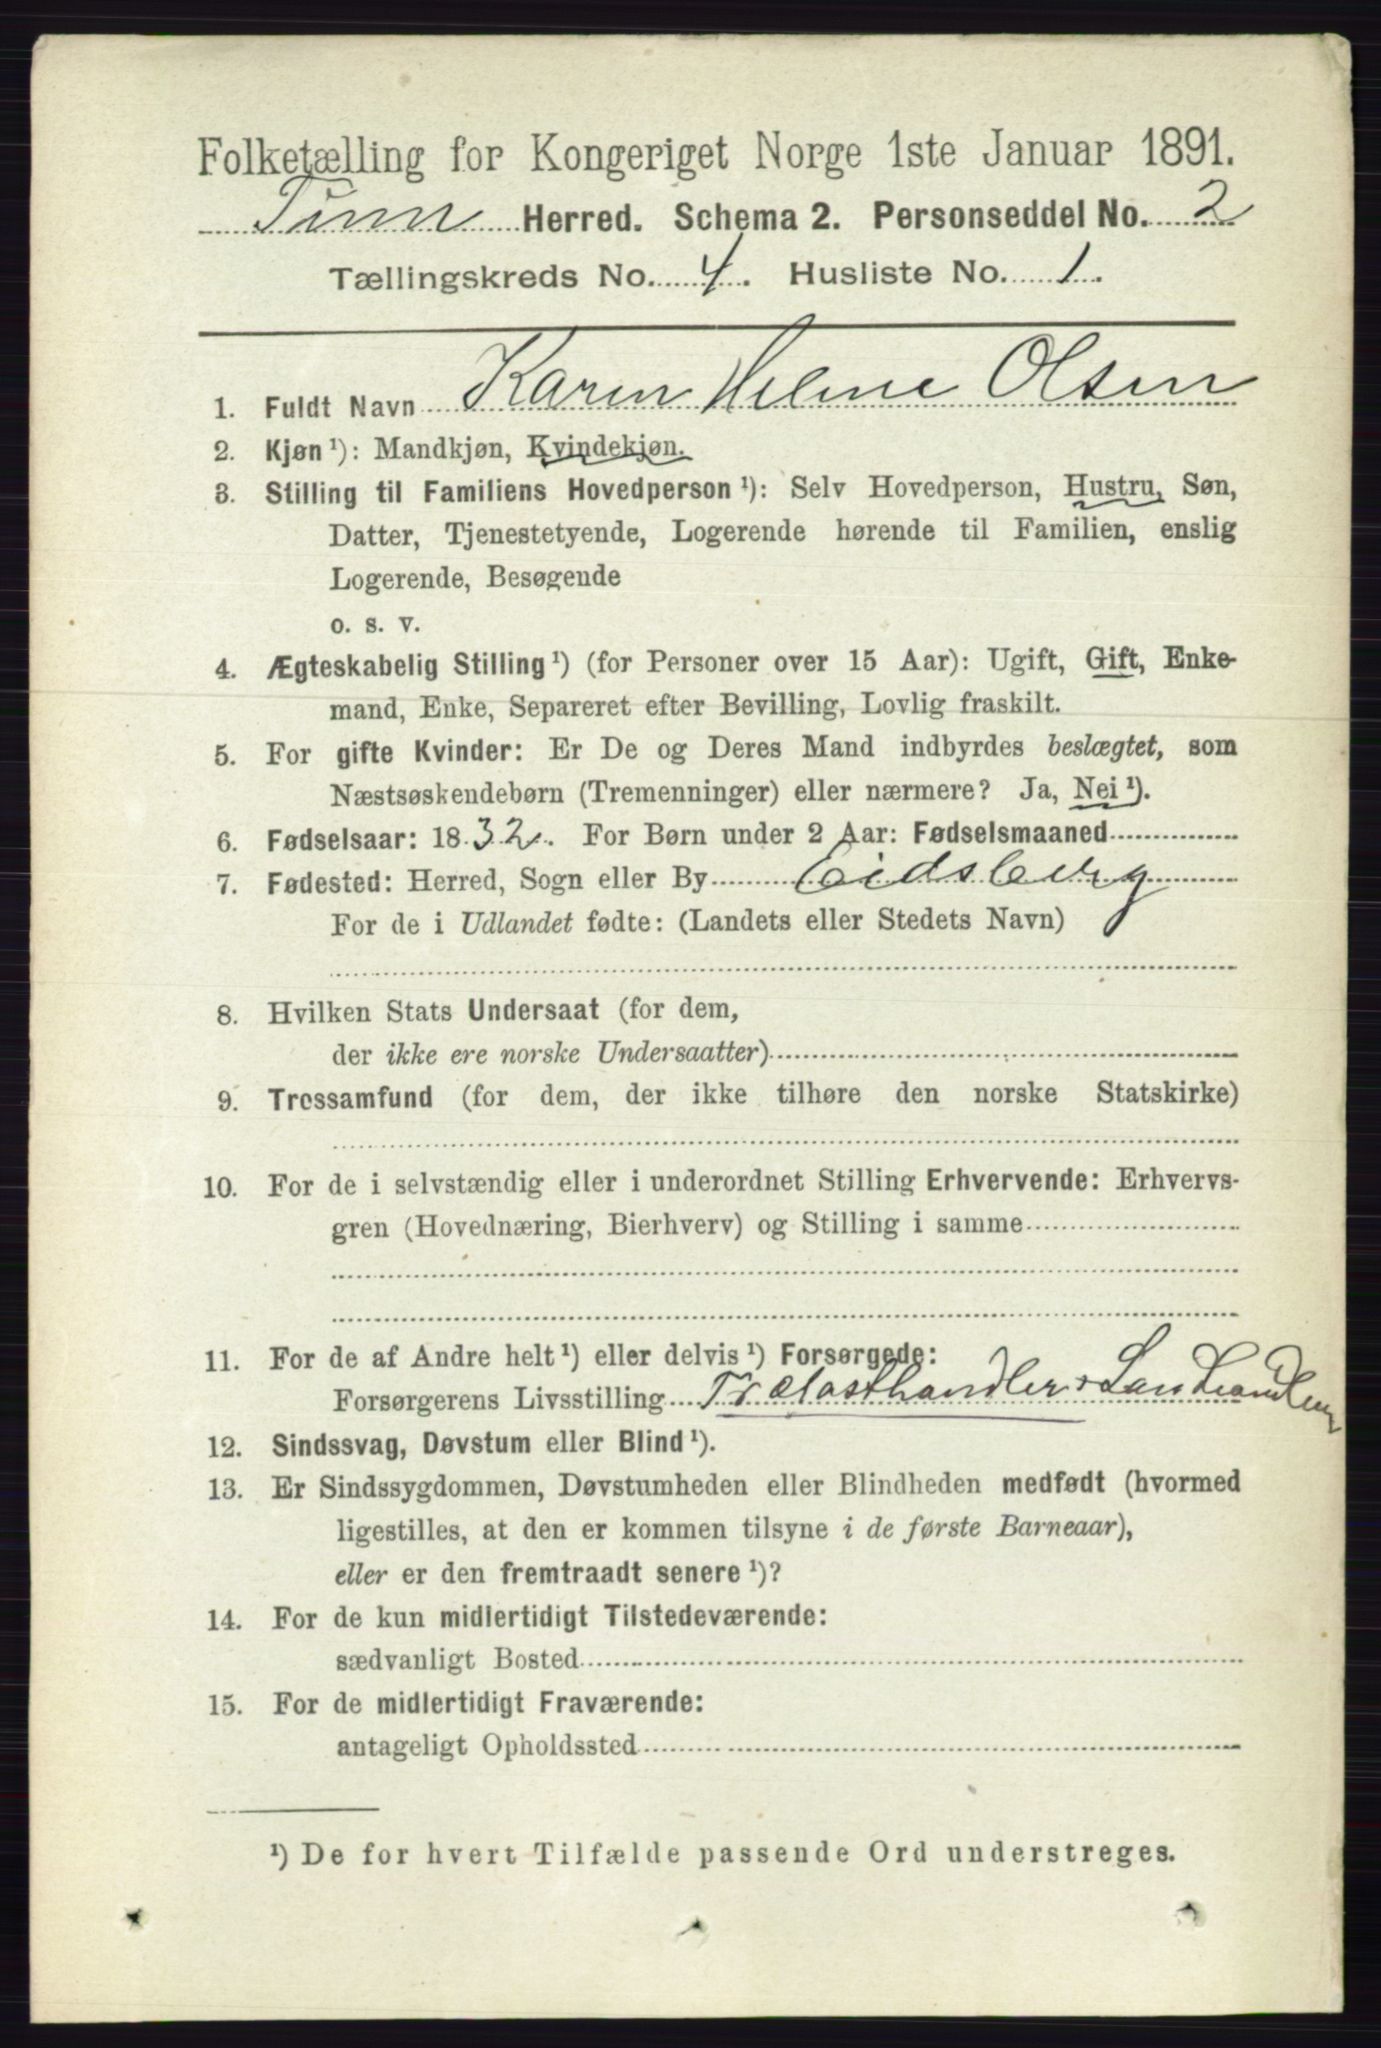 Folketælling for Kongeriget Norge 1ste Januar 1891.
Tinn Herred. Schema 2. Personseddel No. 2
Tællingskreds No. 4. Husliste No. 1.
1. Fuldt Navn Karen Helene Olsen
2. Kjøn ¹): Mandkjøn, Kvindekjøn.
3. Stilling til Familiens Hovedperson ¹): Selv Hovedperson, Hustru, Søn,
Datter, Tjenestetyende, Logerende hørende til Familien, enslig
Logerende, Besøgende
o. s. v.
4. Ægteskabelig Stilling ¹) (for Personer over 15 Aar): Ugift, Gift, Enke-
mand, Enke, Separeret efter Bevilling, Lovlig fraskilt.
5. For gifte Kvinder: Er De og Deres Mand indbyrdes beslægtet, som
Næstsøskendebørn (Tremenninger) eller nærmere? Ja, Nei ¹).
6. Fødselsaar: 1832. For Børn under 2 Aar: Fødselsmaaned
7. Fødested: Herred, Sogn eller By Eidsberg
For de i Udlandet fødte: (Landets eller Stedets Navn)
8. Hvilken Stats Undersaat (for dem,
der ikke ere norske Undersaatter)
9. Trossamfund (for dem, der ikke tilhøre den norske Statskirke)
10. For de i selvstændig eller i underordnet Stilling Erhvervende: Erhvervs-
gren (Hovednæring, Bierhverv) og Stilling i samme
11. For de af Andre helt ¹) eller delvis ¹) Forsørgede:
Forsørgerens Livsstilling Trælasthandler
12. Sindssvag, Døvstum eller Blind ¹).
13. Er Sindssygdommen, Døvstumheden eller Blindheden medfødt (hvormed
ligestilles, at den er kommen tilsyne i de første Barneaar),
eller er den fremtraadt senere ¹)?
14. For de kun midlertidigt Tilstedeværende:
sædvanligt Bosted
15. For de midlertidigt Fraværende:
antageligt Opholdssted
¹) De for hvert Tilfælde passende Ord understreges.